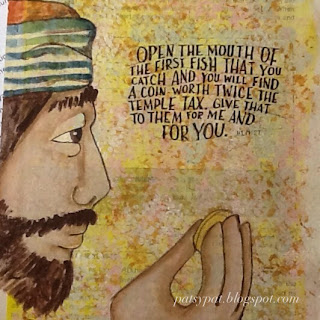 OPEN THE MOUTH OF
THE FIRST FISH THAT YOU
CATCH AND YOU WILL FIND
A COIN WORTH TWICE THE
TEMPLE TAX. GIVE THAT
TO THEM FOR ME AND
FOR YOU.
patsypat.blogspot.com